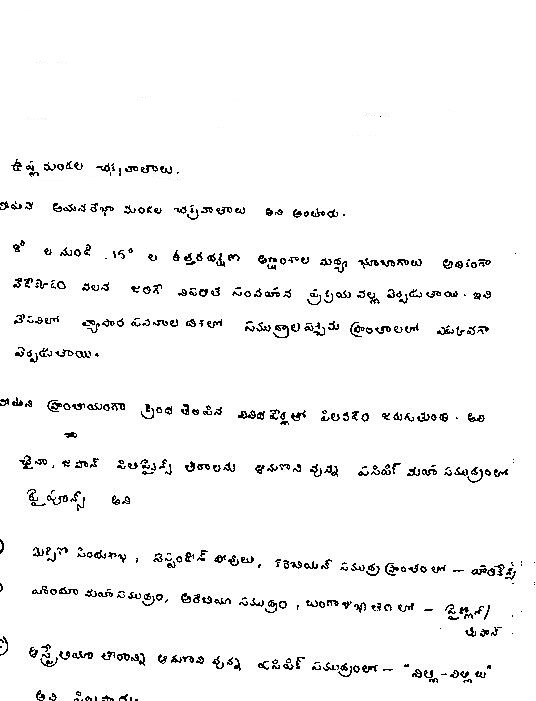 ఉష్ణ మండల చక్రవాతాలు.
వీటినే ఆయనరేఖా మండల చక్రవాతాలు అని అంటారు.
8° ల నుండి 15° ల ఉత్తర దక్షిణ అక్షాంశాల మధ్య భూభాగాలు అధికంగా
వేడెక్కడం వలన జరిగే సంవహన ప్రక్రియ వల్ల ఏర్పడుతాయి. ఇవి
వేసవిలో వ్యాపార పవనాల దిశలో సముద్రాల పశ్చిమ ప్రాంతాలలో ఎక్కువగా
ఏర్పడుతాయి.
వీటిని ప్రాంతీయంగా క్రింద తెలిపిన వివిధ పేర్లతో పిలవడం జరుగుతుంది. అవి
చైనా, జపాన్ ఫిలిప్పైన్స్ తీరాలను ఆనుకొని వున్న పసిఫిక్ మహా సముద్రంలో
టైఫూన్స్ అని
మెక్సికో సింధుశాఖ, వెస్టిండీస్ దీవులు, కరేబియన్ సముద్ర ప్రాంతంలో – హరికేన్స్
హిందూ మహా సముద్రం, అరేబియా సముద్రం, బంగాళాఖాతంలో – సైక్లోన్స్/
తుఫాన్
ఆస్ట్రేలియా తీరాన్ని ఆనుకొని వున్న పసిఫిక్ సముద్రంలో – "విల్లీ-విల్లీలు"
అని పిలుస్తారు.